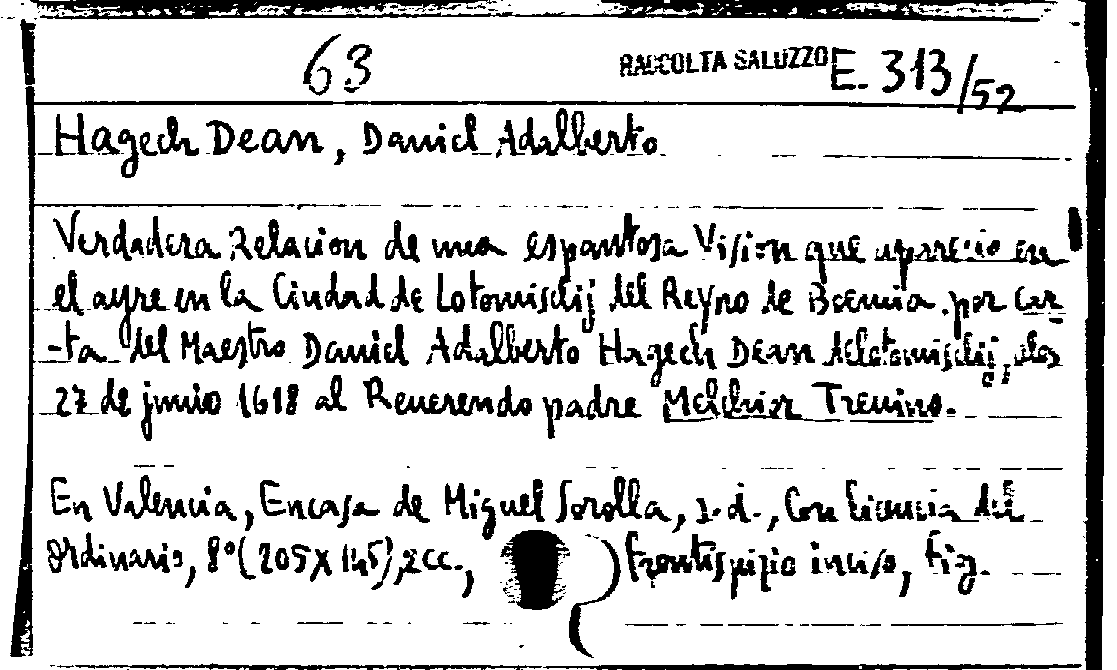 63 RACCOLTA SALUZZO E. 313/52
Hagech Dean, Daniel Adalberto
Verdadera Relacion de una espantosa Vision que aparecio en
el ayre en la Ciudad de Lotomischij del Reyno de Boemia. por Car
-ta del Maestro Daniel Adalberto Hagech Dean de Lotomischij, alos
27 de junio 1618 al Reuerendo padre Melchior Treuino.
En Valencia, Encasa de Miguel Sorolla, s.d., Con licencia del
Ordinario, 8° (205X145), 2cc., Frontispizio inciso, Fig.